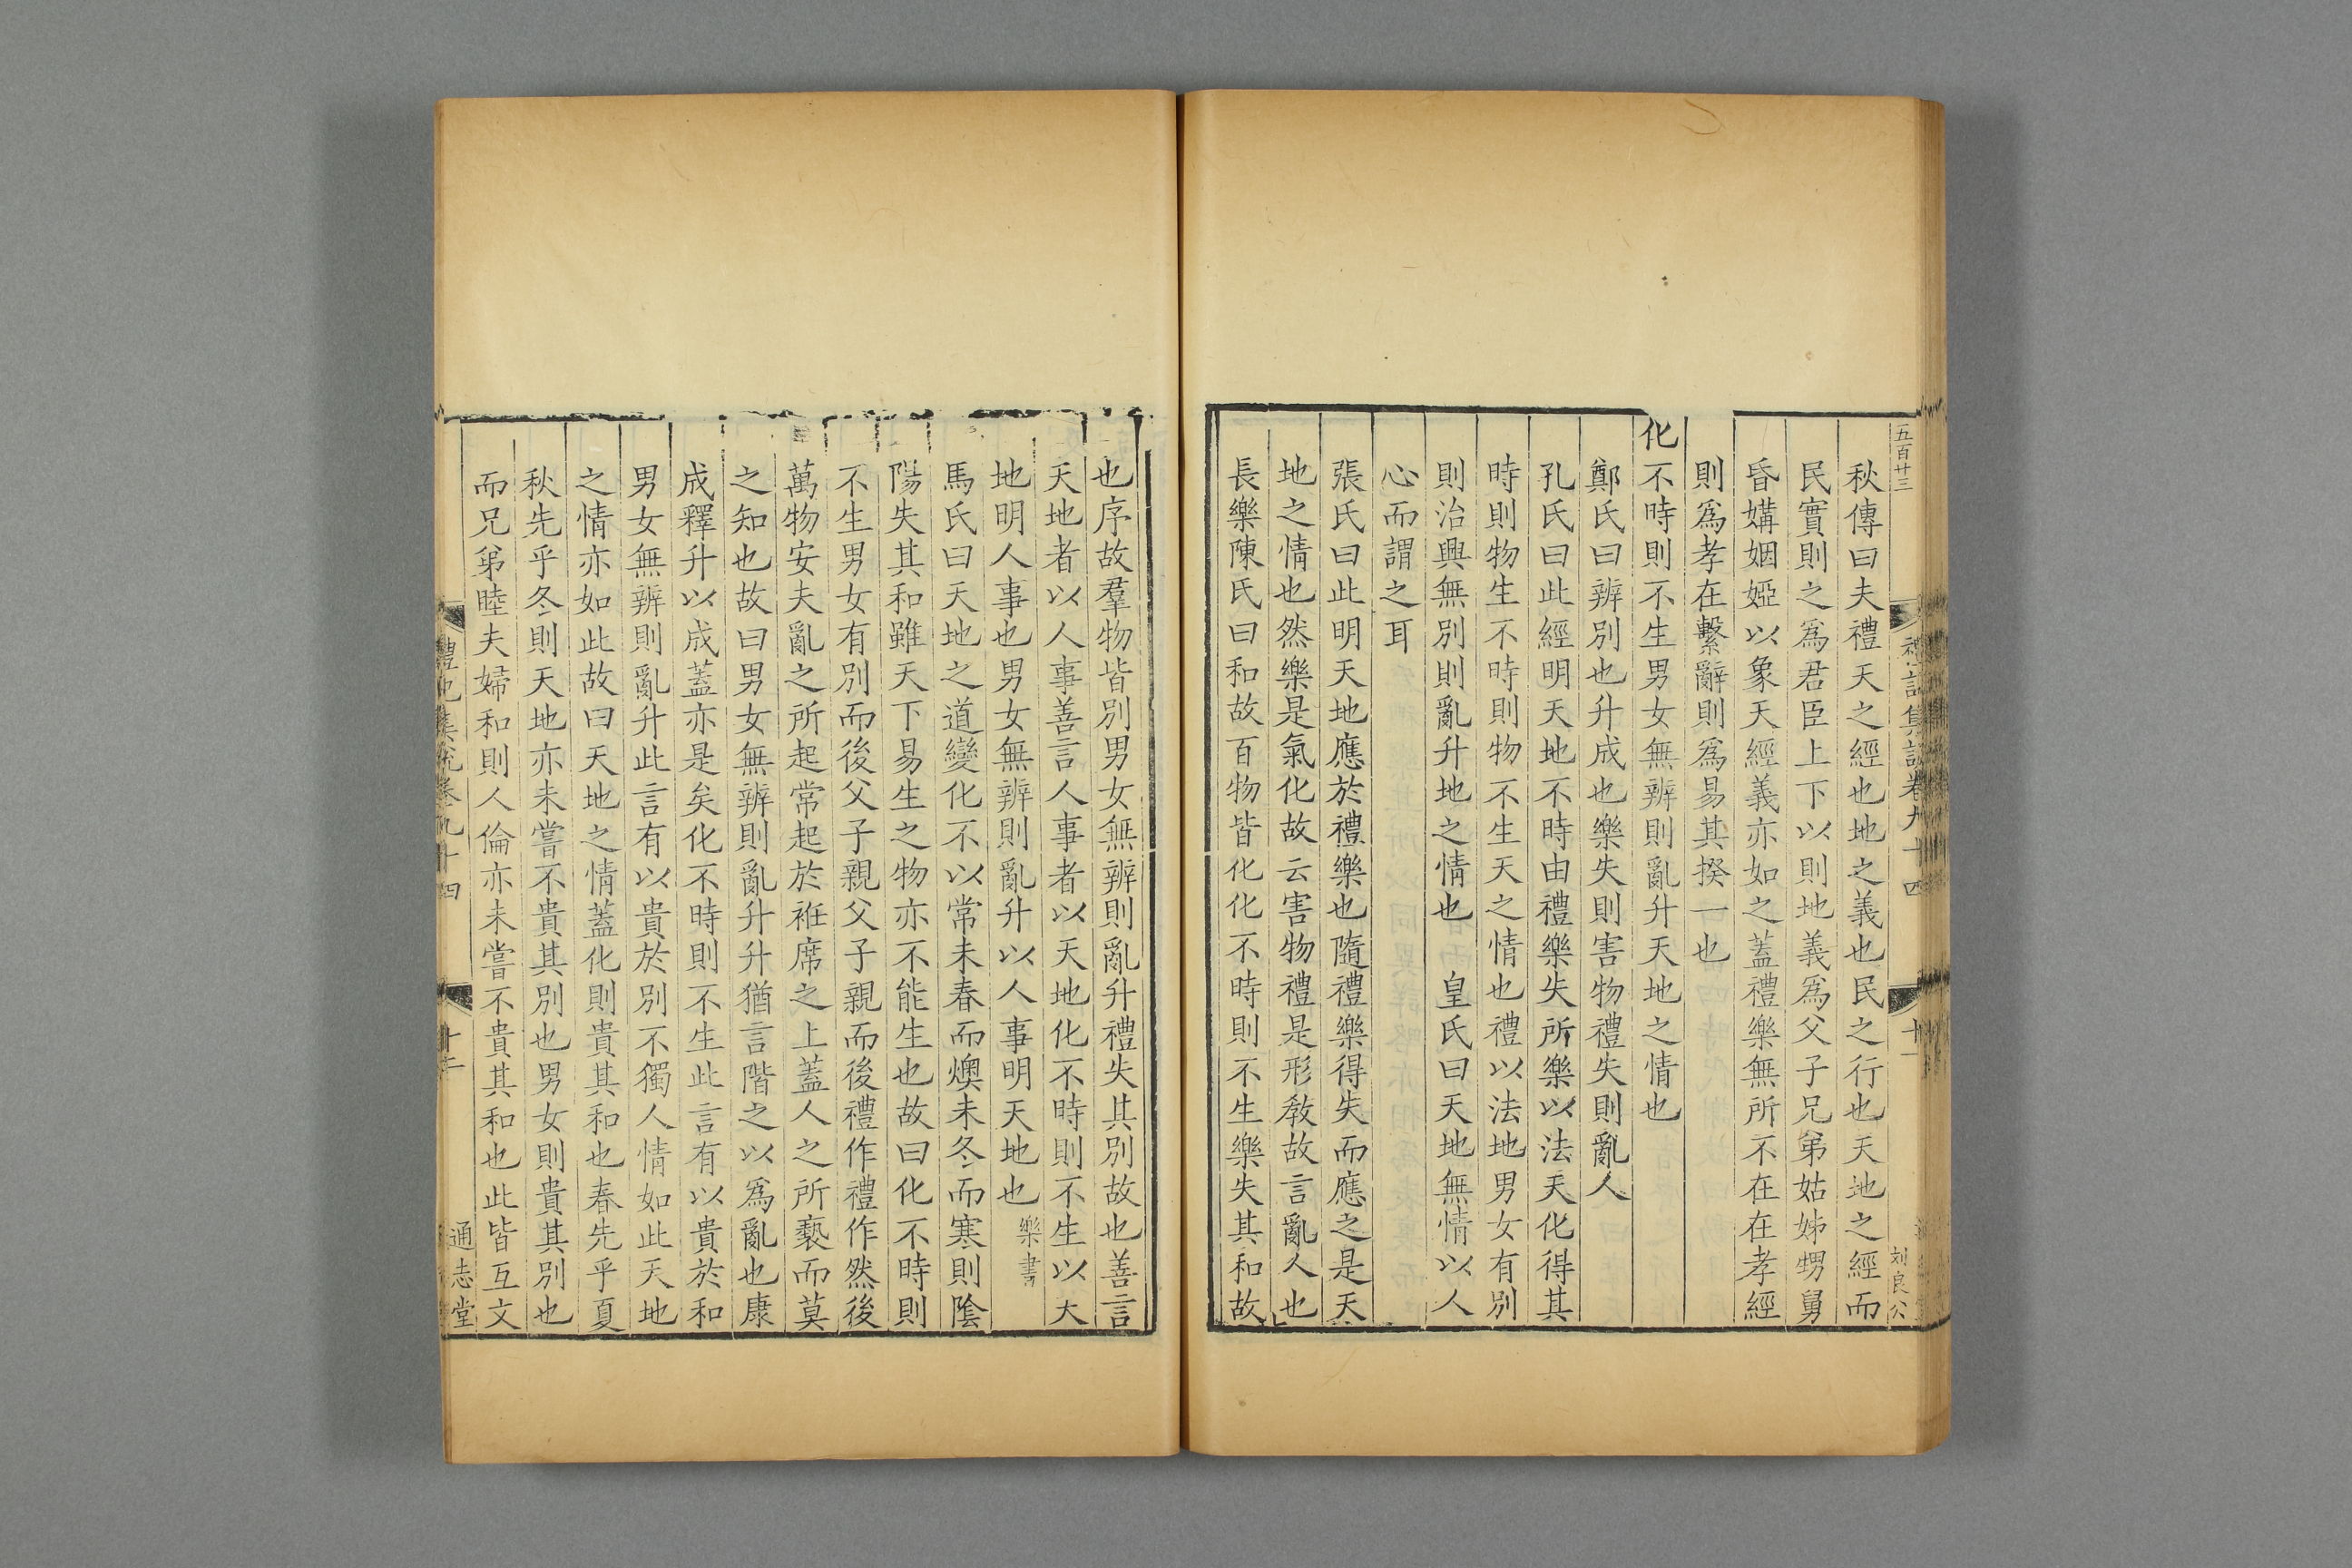 五百廿三
禮記集説卷九十四
十一
刘良公
秋傳曰夫禮天之經也地之義也民之行也天地之經而
民實則之爲君臣上下以則地義爲父子兄弟姑姊甥舅
昏媾姻婭以象天經義亦如之蓋禮樂無所不在在孝經
則爲孝在繫辭則爲易其揆一也
化不時則不生男女無辨則亂升天地之情也
鄭氏曰辨別也升成也樂失則害物禮失則亂人
孔氏曰此經明天地不時由禮樂失所樂以法天化得其
時則物生不時則物不生天之情也禮以法地男女有別
則治興無別則亂升地之情也 皇氏曰天地無情以人
心而謂之耳
張氏曰此明天地應於禮樂也隨禮樂得失而應之是天
地之情也然樂是氣化故云害物禮是形教故言亂人也
長樂陳氏曰和故百物皆化化不時則不生樂失其和故
也序故羣物皆別男女無辨則亂升禮失其別故也善言
天地者以人事善言人事者以天地化不時則不生以大
地明人事也男女無辨則亂升以人事明天地也 樂書
馬氏曰天地之道變化不以常未春而燠未冬而寒則陰
陽失其和雖天下易生之物亦不能生也故曰化不時則
不生男女有別而後父子親父子親而後禮作禮作然後
萬物安夫亂之所起常起於袵席之上蓋人之所褻而莫
之知也故曰男女無辨則亂升升猶言階之以爲亂也康
成釋升以成蓋亦是矣化不時則不生此言有以貴於和
男女無辨則亂升此言有以貴於別不獨人情如此天地
之情亦如此故曰天地之情蓋化則貴其和也春先乎夏
秋先乎冬則天地亦未嘗不貴其別也男女則貴其別也
而兄弟睦夫婦和則人倫亦未嘗不貴其和也此皆互文
禮記集説卷九十四
十二
通志堂